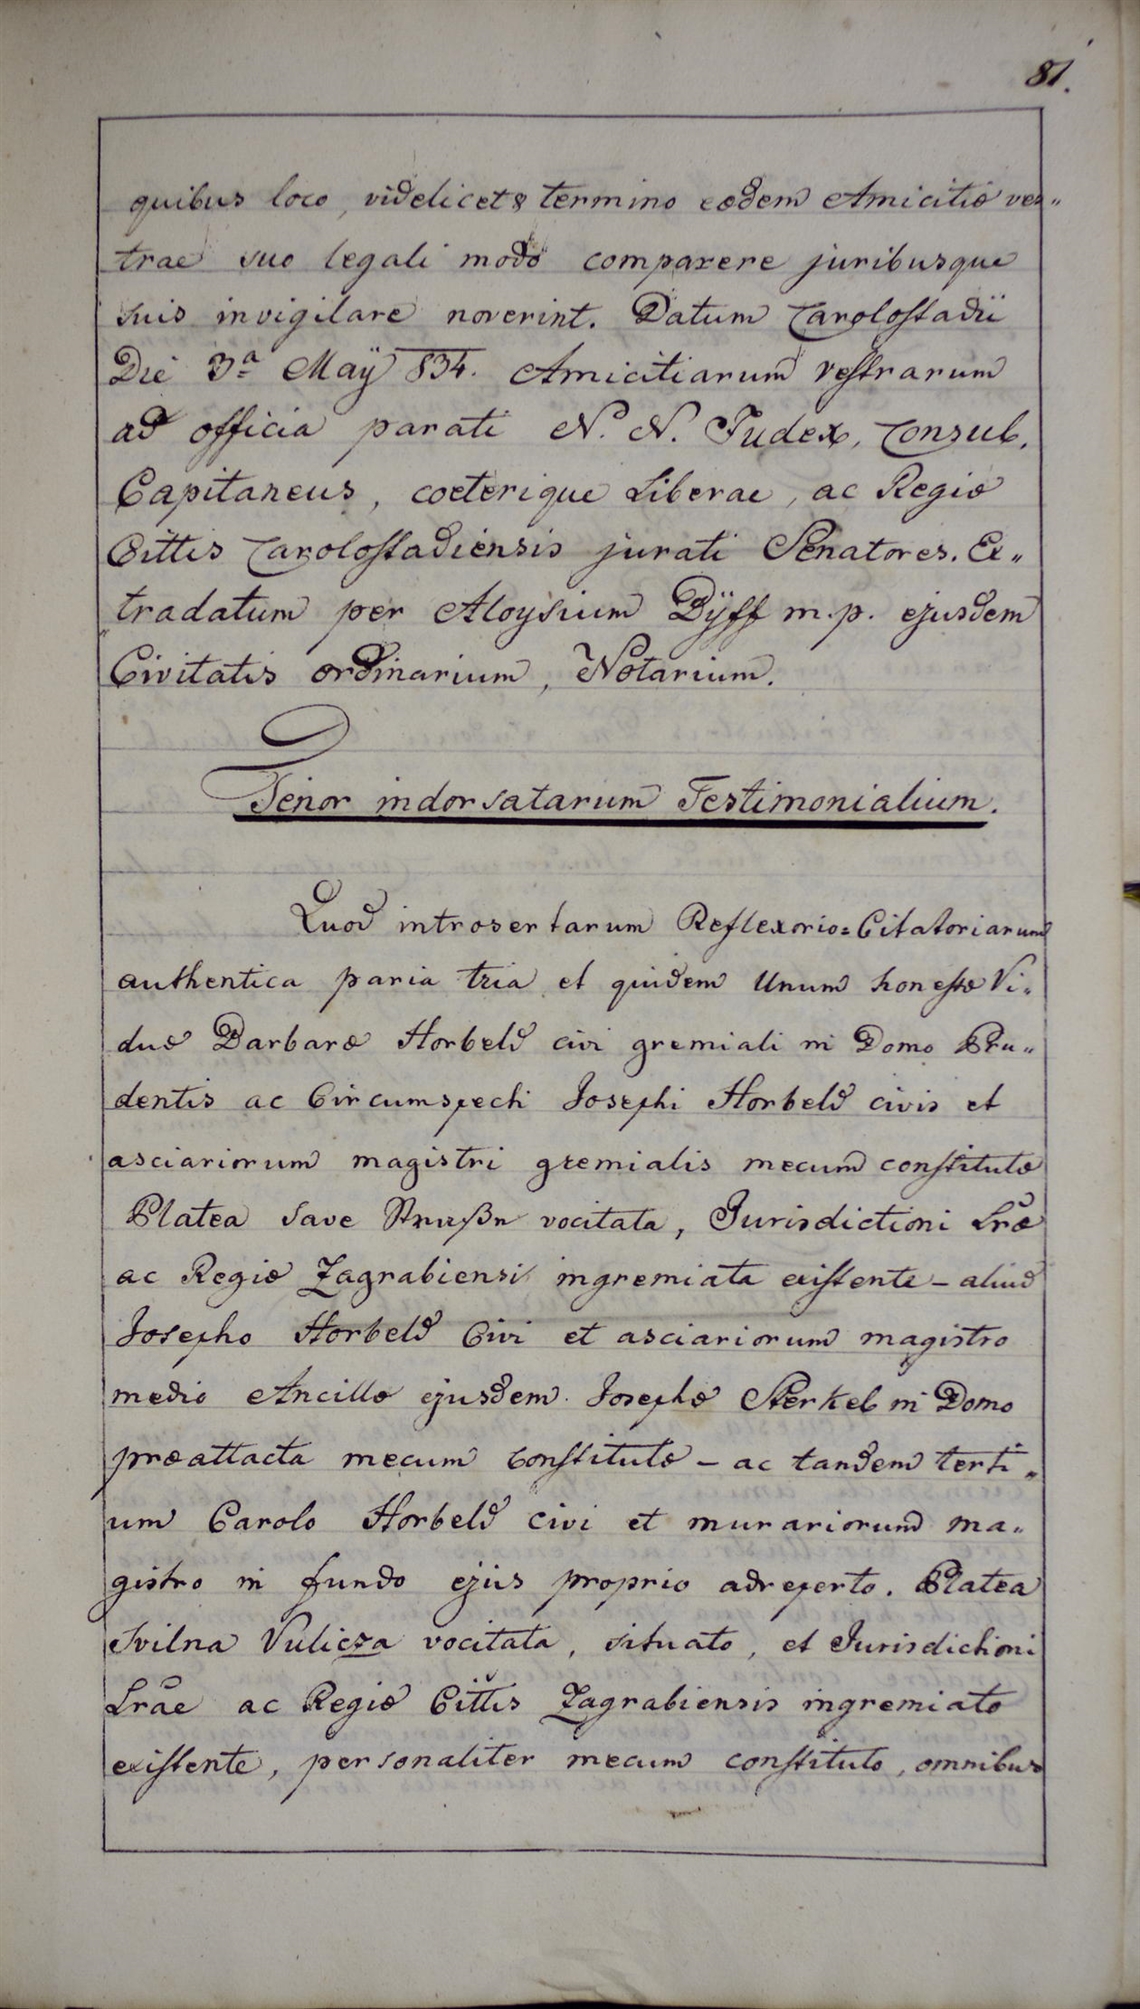 81.
quibus loco, videlicet & termino eædem Amicitiæ ves„
trae suo legali modo comparere juribusque
suis invigilare noverint. Datum Carolostadii
Die 3ª Maÿ 834. Amicitiarum vestrarum
ad officia parati N. N. Judex, Consul,
Capitaneus, coeterique Liberae, ac Regiæ
Cittis Carolostadiensis jurati Senatores. Ex„
tradatum per Aloysium Dÿff m.p. ejusdem
Civitatis ordinarium, Notarium.
Tenor indorsatarum Testimonialium.
Quod introsertarum Reflexorio=Citatoriarum
authentica paria tria et quidem Unum honestæ Vi„
duæ Barbaræ Horbeld civi gremiali in Domo Pru„
dentis ac Circumspecti Josephi Horbeld civis et
asciariorum magistri gremialis mecum constitutæ
Platea Save Straßa vocitata, Jurisdictioni Lræ
ac Regiæ Zagrabiensi ingremiata existente – aliud
Josepho Horbeld Civi et asciariorum magistro
medio Ancillæ ejusdem Josephæ Sterkel in Domo
præattacta mecum constitutæ – ac tandem terti„
um Carolo Horbeld civi et murariorum ma„
gistro in fundo ejus proprio adreperto. Platea
Svilna Vulicza vocitata, situato, et Jurisdictioni
Lrae ac Regiæ Cittis Zagrabiensis ingremiato
existente, personaliter mecum constituto, omnibus